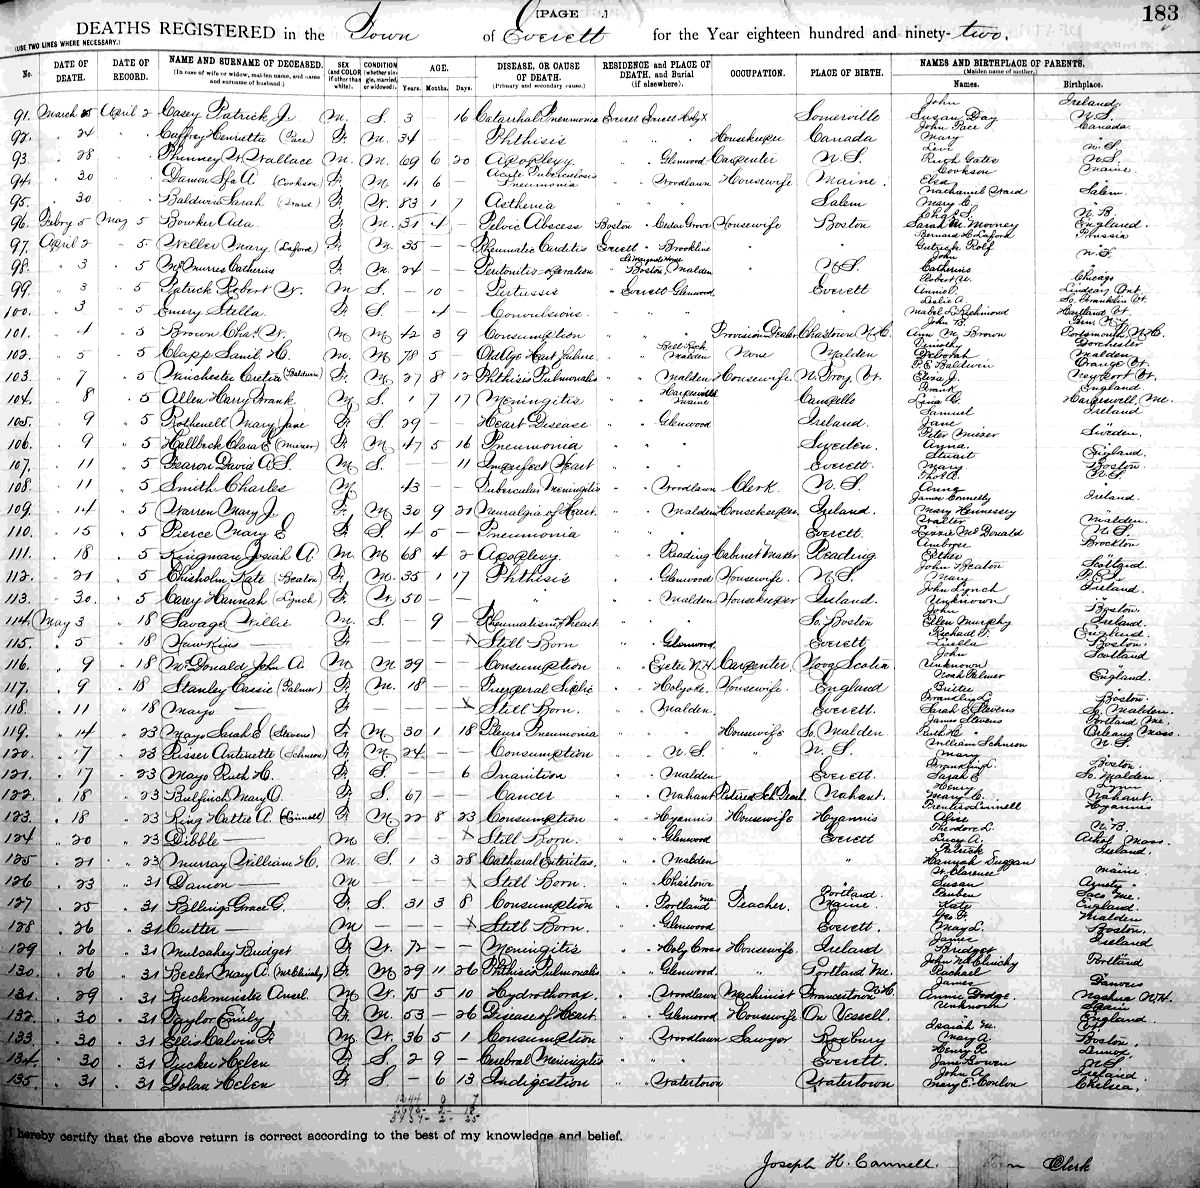 [PAGE .]
183
DEATHS REGISTERED in the Town of Everett for the Year eighteen hundred and ninety- two.
(USE TWO LINES WHERE NECESSARY.)
No. DATE OF DEATH. DATE OF RECORD. NAME AND SURNAME OF DECEASED. (In case of wife or widow, maiden name, and name and surname of husband.) SEX (and COLOR if other than white). CONDITION (whether single, married, or widowed). AGE. Years. Months. Days. DISEASE, OR CAUSE OF DEATH. (Primary and secondary cause.) RESIDENCE and PLACE OF DEATH, and Burial (if elsewhere). OCCUPATION. PLACE OF BIRTH. NAMES AND BIRTHPLACE OF PARENTS. (Maiden name of mother.) Names. Birthplace.
91. March 25 April 2 Casey Patrick J. M. S. 3 16 Catarrhal Pneumonia Everett Everett Holy X Somerville John Susan Day Ireland N.S.
92. " 24 " " Caffrey Henrietta (Pace) F. M. 34 Phthisis " " Housekeeper Canada John Pace Mary Canada
93. " 28 " " Phinney W. Wallace M. M. 69 6 20 Apoplexy " Glenwood Carpenter N.S. Levi Ruth Gates N.S. N.S.
94. " 30 " " Damon A (Cookson) F. M. 41 6 Acute Tuberculosis Pneumonia " Woodlawn Housewife Maine. Cookson Maine.
95. " 30 " " Baldwin Sarah (Ward) F. W. 83 1 7 Asthenia " " Salem Nathaniel Ward Mary C. Salem
96. Febry 5 May 5 Bowker Ada F. M. 31 4 – Pelvic Abscess Boston " Cedar Grove Housewife Boston Sarah M. Mooney N.B. England.
97. April 2 " 5 Weller Mary (Laford) F. M. 35 – Rheumatic Carditis Everett " Brookline " " Bernard Laford Gutrick Rolf Prussia "
98. " 3 " 5 McMurres Catherine F. M. 24 – – Peritonitis – operation " Boston Malden " N.S. John Catherine N.S.
99. " 3 " 5 Patrick Robert W. M S. – 10 – Pertussis " Everett Glenwood Everett Robert W. Annie Chicago Lindsay Ont.
100. " 3 " 5 Emery Stella F. S. 4 – Convulsions " " " Leslie A. Mabel L. Richmond So. Franklin Vt. Hartland Vt.
101. " 4 " 5 Brown Chas. W. M M 42 3 9 Consumption " " Provision Dealer Chastown N.H. John B. Ann M. Brown Portsmouth N.H.
102. " 5 " 5 Clapp Saml. H. M. M. 78 5 – Old Age Heart failure " Bell Rock Malden None Malden Timothy Deborah Dorchester Malden
103. " 7 " 5 Winchester Cretia (Baldwin) F. M. 27 8 12 Phthisis Pulmonalis " Malden Housewife N. Troy, Vt. P.E. Baldwin Eliza J. Orange Vt. Newport Vt.
104. " 8 " 5 Allen Harry Frank M S. 1 7 17 Meningitis " Harpswell Maine Campello Frank Lina England Harpswell, Me.
105. " 9 " 5 Rothenell Mary Jane F S 29 – Heart Disease " Glenwood Ireland. Samuel Jane Ireland
106. " 9 " 5 Hallbrek Clara E (Meiser) F M 47 5 16 Pneumonia " " Sweden. Peter Meiser Anna. Sweden.
107. " 11 " 5 Fearon David A.S. M S. 11 Imperfect Heart " " Everett. Stuart Mary England. Boston
108. " 11 " 5 Smith Charles M 43 – Tubercular Meningitis " Woodlawn Clerk. N.S. Thos A. Anna N.S.
109. " 14 " 5 Warren Mary J. F. M. 30 9 21 Neuralgia of Heart. " Malden Housekeeper. Ireland. James Connelly Mary Hennessey Ireland.
110. " 15 " 5 Pierce Mary E F. S. 4 5 – Pneumonia " " Everett. Walter Lizzie McDonald Malden. N.S.
111. " 18 " 5 Kingman Josiah A. M. M 68 4 2 Apoplexy " Reading Cabinet Maker Reading Ambrose Esther Brockton
112. " 21 " 5 Chisholm Kate (Beaton) F. M. 35 1 17 Phthisis " Glenwood Housewife. N.S. John Beaton Mary Scotland P.E.I.
113. " 30. " 5 Carey Hannah (Lynch) F. W. 50 – – " " Malden Housekeeper Ireland. John Lynch Unknown Ireland.
114. May 3 " 18 Savage Willie M. S – 9 – Rheumatism of heart " " So. Boston John Ellen Murphy Boston. Ireland.
115. " 5 " 18 Hawkins – F. – – X Still Born " Glenwood Everett Richard T. Luella England. Boston.
116. " 9 " 18 McDonald John A. M M. 39 – – Consumption " Exeter N.H. Carpenter Nova Scotia John Unknown Scotland
117. " 9 " 18 Stanley Cassie (Palmer) F. M. 18 – – Puerperal Septic " Holyoke Housewife. England Noah Palmer England.
118. " 11 " 18 Mayo F. – – – X Still Born. " Malden Everett. Franklin L. Sarah E Stevens Boston. So. Malden.
119. " 14 " 23 Mayo Sarah E (Stevens) F. M 30 1 18 Pleuro Pneumonia " " Housewife So. Malden James Stevens Ruth H. Portland Me. Orleans Mass.
120. " 17 " 23 Risser Antinette (Schuron) F. M. 24 – Consumption " N.S " N.S. William Schuron Mary N.S.
121. " 17 " 23 Mayo Ruth H. F. S. – – 6 Inanition " Malden Everett. Franklin L. Sarah E Boston. So. Malden.
122. " 18 " 23 Bulfinch Mary O. F. S. 67 – – Cancer " Nahant Retired Sch. Teach. Nahant. Henry Mary C. Lynn Nahant.
123. " 18 " 23 King Hattie A. (Linnell) F. M 22 8 23 Consumption " Hyannis Housewife Hyannis Prentiss Linnell Alice Hyannis
124 " 20 " 23 Dibble – M S. – – X Still Born. " Glenwood Everett Theodore L. Lucy A. N.B. Athol Mass.
125 " 21 " 23 Murray William H. M. S. 1 3 28 Catarrhal Enteritis. " Malden " Patrick Hannah Duggan Ireland.
126 " 23 " 31 Damon – M – – – X Still Born. " Chastown W. Clarence Susan Maine
127 " 25 " 31 Billings Grace G. F. S. 31 3 8 Consumption " Portland Me. Teacher. Portland Maine. Kate Saco Me. England.
128 " 26 " 31 Cutter – M – – – X Still Born. " Glenwood Everett. Geo F. May L. Malden Boston.
129 " 26 " 31 Mulcahey Bridget F. W. 72 – – Meningitis " Holy Cross Housewife. Ireland James Bridget Ireland
130. " 26 " 31 Beeler Mary A. (McClinchy) F. M 29 11 26 Phthisis Pulmonalis " Glenwood " Portland Me. John McClinchy Rachael Portland
131. " 29 " 31 Buckminster Ansel. M W. 75 5 10 Hydrothorax. " Woodlawn Machinist Francestown N.H. James Annie Dodge. Danvers Nashua N.H.
132. " 30 " 31 Taylor Emily F. M. 53 – 26 Disease of Heart. " Glenwood Housewife On Vessell. Unknown England
133. " 30 " 31 Ellis Calvin F. M. W. 36 5 1 Consumption " Woodlawn Sawyer Roxbury Isaiah M. Mary A. Vt. Boston.
134. " 30 " 31 Tucker Helen F. S. 2 9 – Cerebral Meningitis " " Everett. Henry R. Jane Bowen Lenox N.S.
135. " 31 " 31 Dolan Helen F S. – 6 13 Indigestion " Watertown Watertown John A. Mary E. Conlon Ireland Chelsea.
I hereby certify that the above return is correct according to the best of my knowledge and belief.
Joseph H. Cannell. Town Clerk